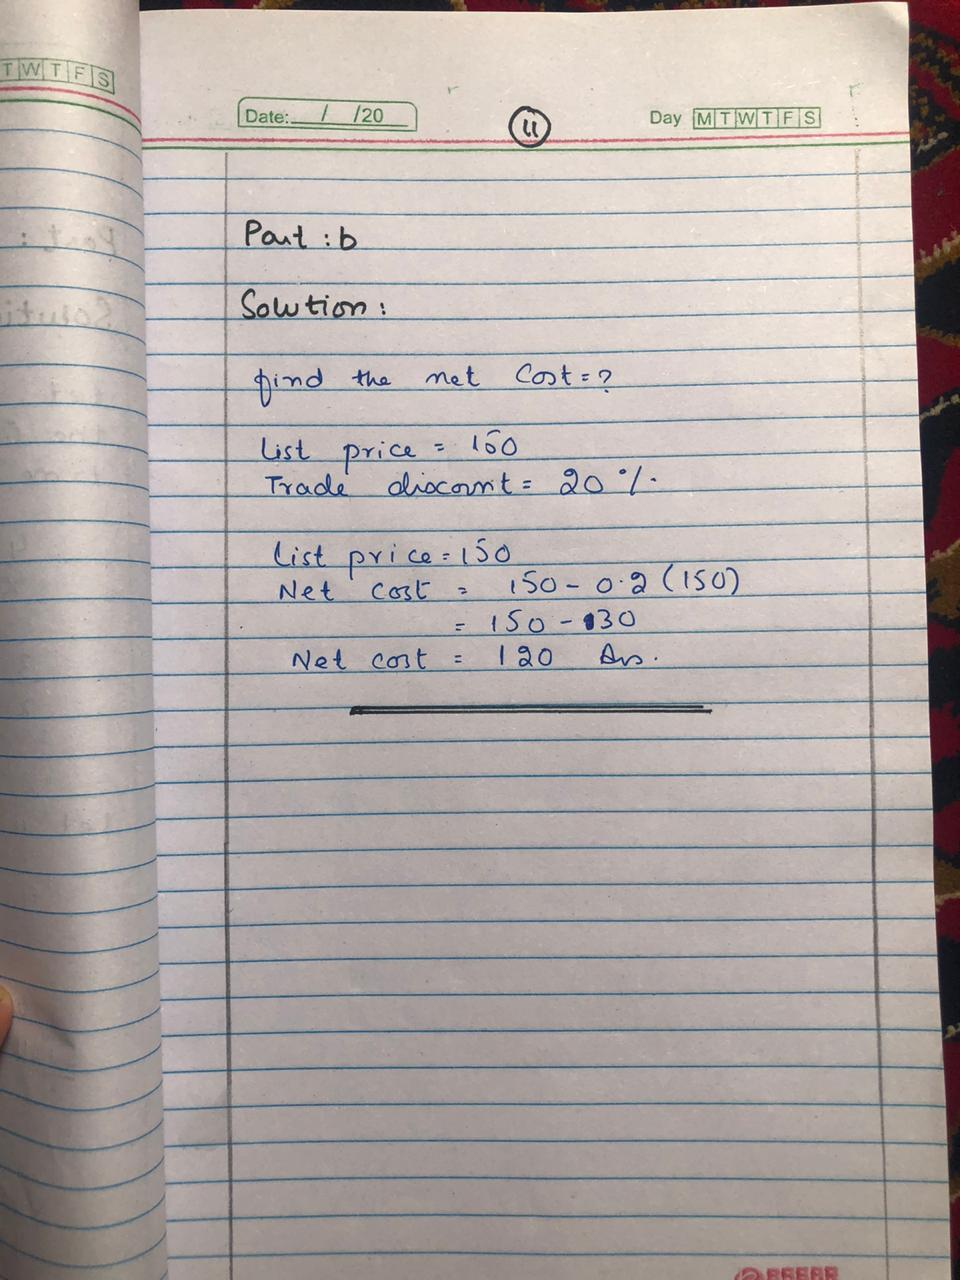 T W T F S
Date: / /20
11
Day M T W T F S
Part : b
Solution :
find the net Cost = ?
List price = 150
Trade discount = 20 %.
List price = 150
Net cost = 150 - 0.2 (150)
= 150 - 30
Net cost = 120 Ans.